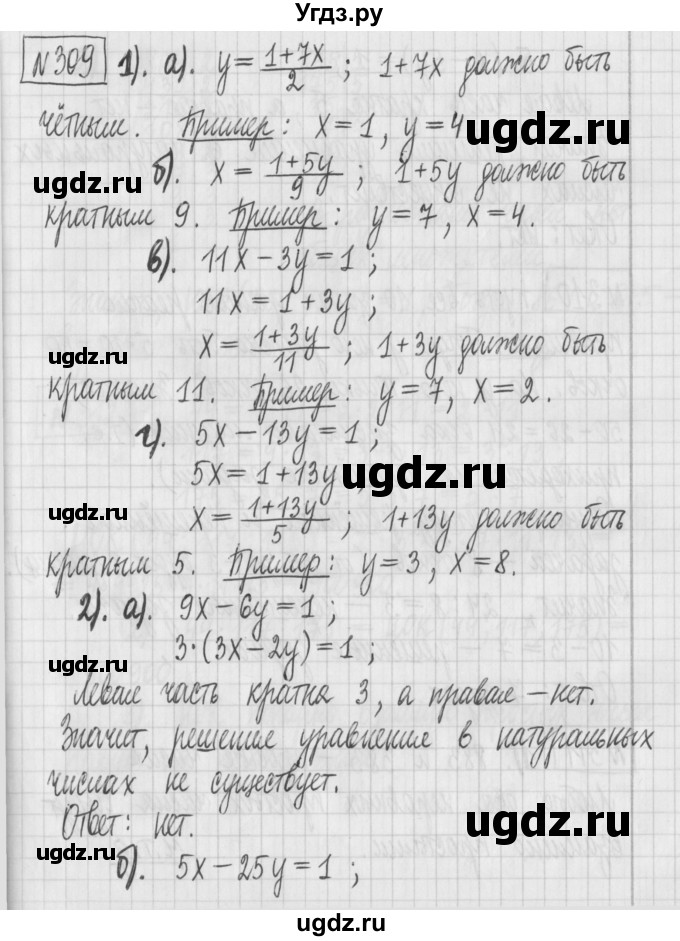 Угдз.ру
№309 1). а). y = (1+7x)/2 ; 1+7x должно быть
чётным. Пример: x=1, y=4
ugdz.ru
ugdz.ru б). x = (1+5y)/9 ; 1+5y должно быть
кратным 9. Пример: y=7, x=4.
в). 11x-3y=1 ;
11x=1+3y ;
ugdz.ru x = (1+3y)/11 ; 1+3y должно быть
кратным 11. Пример: y=7, x=2.
г). 5x-13y=1 ;
5x=1+13y
ugdz.ru
ugdz.ru x = (1+13y)/5 ; 1+13y должно быть
кратным 5. Пример: y=3, x=8.
2). а). 9x-6y=1 ;
ugdz.ru 3·(3x-2y)=1 ;
Левая часть кратна 3, а правая - нет.
Значит, решение уравнения в натуральных
ugdz.ru
числах не существует.
Ответ: нет.
ugdz.ru
ugdz.ru б). 5x-25y=1 ;
ugdz.ru